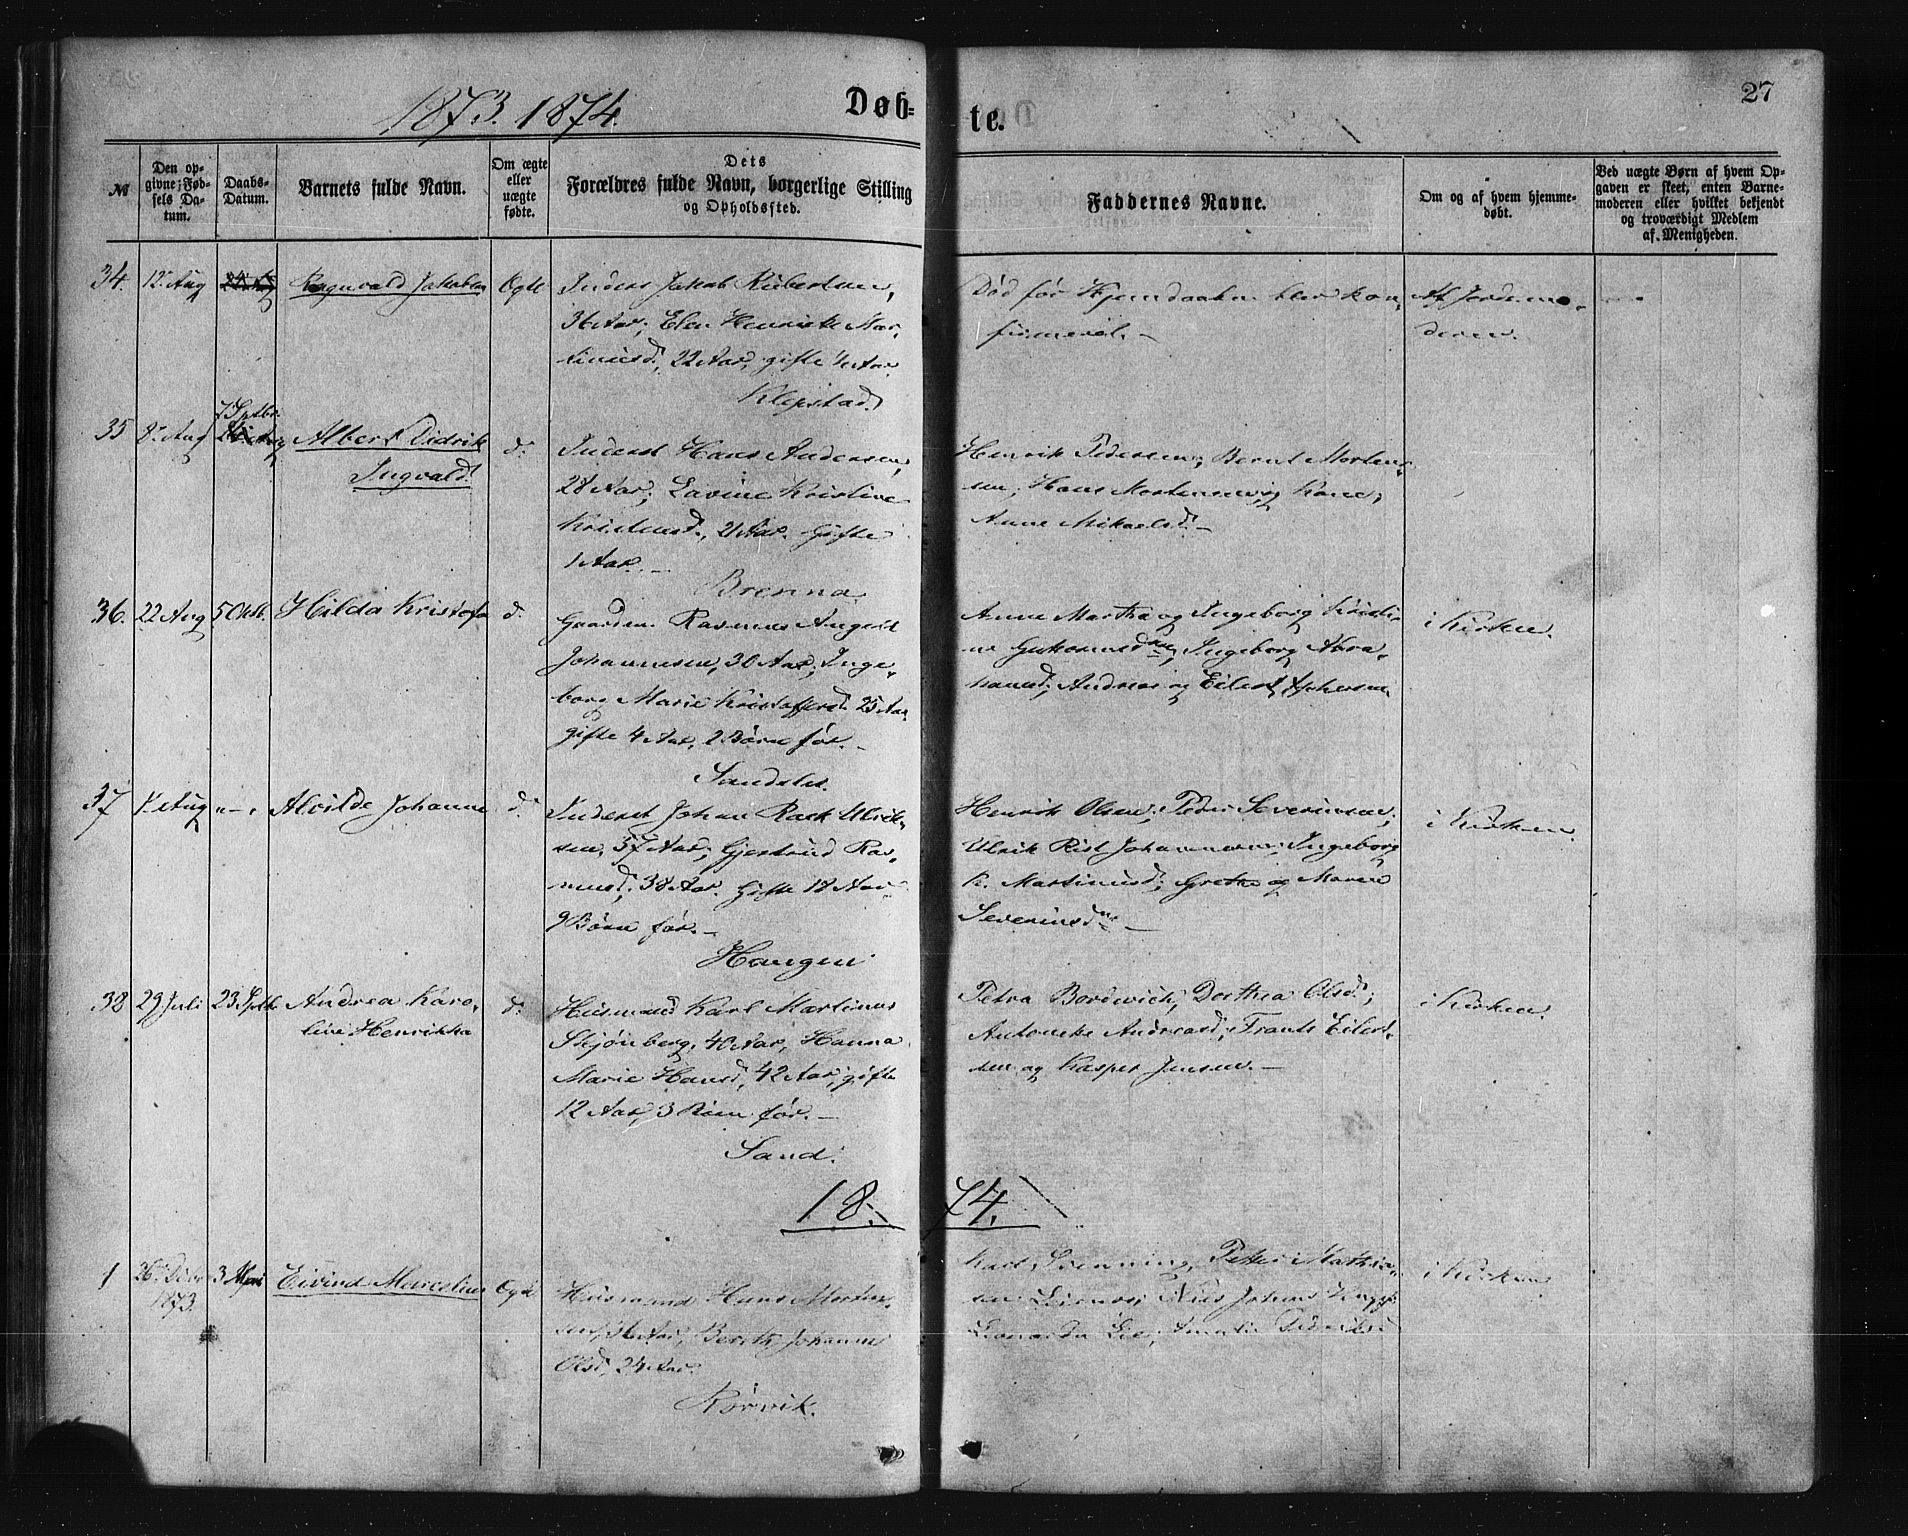 1873. 1874.
Døb-
te.
27
№
Den op-
givne Fød-
sels Da-
tum.
Daabs-
Datum.
Barnets fulde Navn.
Om ægte
eller
uægte
fødte.
Dets
Forældres fulde Navn, borgerlige Stilling
og Opholdssted.
Faddernes Navne.
Om og af hvem hjemme-
døbt.
Ved uægte Børn af hvem Op-
gaven er skeet, enten Barne-
moderen eller hvilket bekjendt
og troværdigt Medlem
af Menigheden.
34. 12 Aug
Ragnvald Jakobsen
Ægte
Inderst Jakob
36 Aar; Elen Henrikke Mar-
tinusd., 22 Aar, gifte 4 Aar.
Klepstad.
Død før Hjemdaaben blev kon-
firmeret. -
Af Jordemo-
deren.
35 8 Aug
7 Sptbr.
Albert Didrik
Ingvald.
d.
Inderst Hans Andersen,
28 Aar; Lavine Kristine
21 Aar. Gifte
1 Aar. -
Brenna
Henrik Pedersen, Bernt Morten-
sen, Hans Mortensen og Kone,
Anne Mikaelsd. -
36. 22 Aug
5 Oktb.
Hilda Kristofa
d.
Gaardm. Rasmus Angell
Johannesen, 30 Aar; Inge-
borg Marie Kristoffersd. 25 Aar
gifte 4 Aar, 2 Børn før. -
Sandslet.
Anne Martha og Ingeborg Kristi-
ne Ingeborg Abra-
hamsd., Andreas og Eilert
i Kirken.
37 1 Aug
Alvilde Johanna
d.
Inderst Johan Rack Ulrik-
sen, 37 Aar; Gjertrud Ras-
musd., 38 Aar. Gifte 18 Aar
9 Børn før. -
Haugen
Henrik Olsen, Peder Severinsen,
Ulrik Rist Johannesen, Ingeborg
K. Martinusd; Grethe og Maren
Severinsdne -
i Kirken.
38 29 Juli
23 Sptb.
Andrea Karo-
line Henrikka
d.
Husmand Karl Martinus
Skjønberg, 40 Aar, Hanna
Marie Hansd, 42 Aar, gifte
12 Aar, 3 Børn før. -
Sand.
Petra Bordevich, Dorthea Olsd.;
Antonette Andreasd; Frants Eilert-
sen og Kasper Jensen. -
i Kirken.
18 74.
1 26 Dcbr
1873.
3
Eivind Marcelius
Ægte
Husmand Hans Morten-
sen, 36 Aar, Johanna
Olsd, 24 Aar.
Rørvik.
Karl Peter Mathia-
sen Nils Johans
Leonarda Amalie
i Kirken